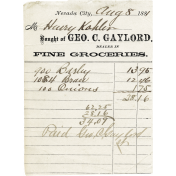 Nevada City, Aug 8 1881
Mr Henry Kohler
Bought of GEO. C. GAYLORD,
DEALER IN
FINE GROCERIES,
900 Barley 1395
1084 Bran 12 46
100 Onions 175
28 16
62.25
28 16
34.09
Paid Geo. C. Gaylord